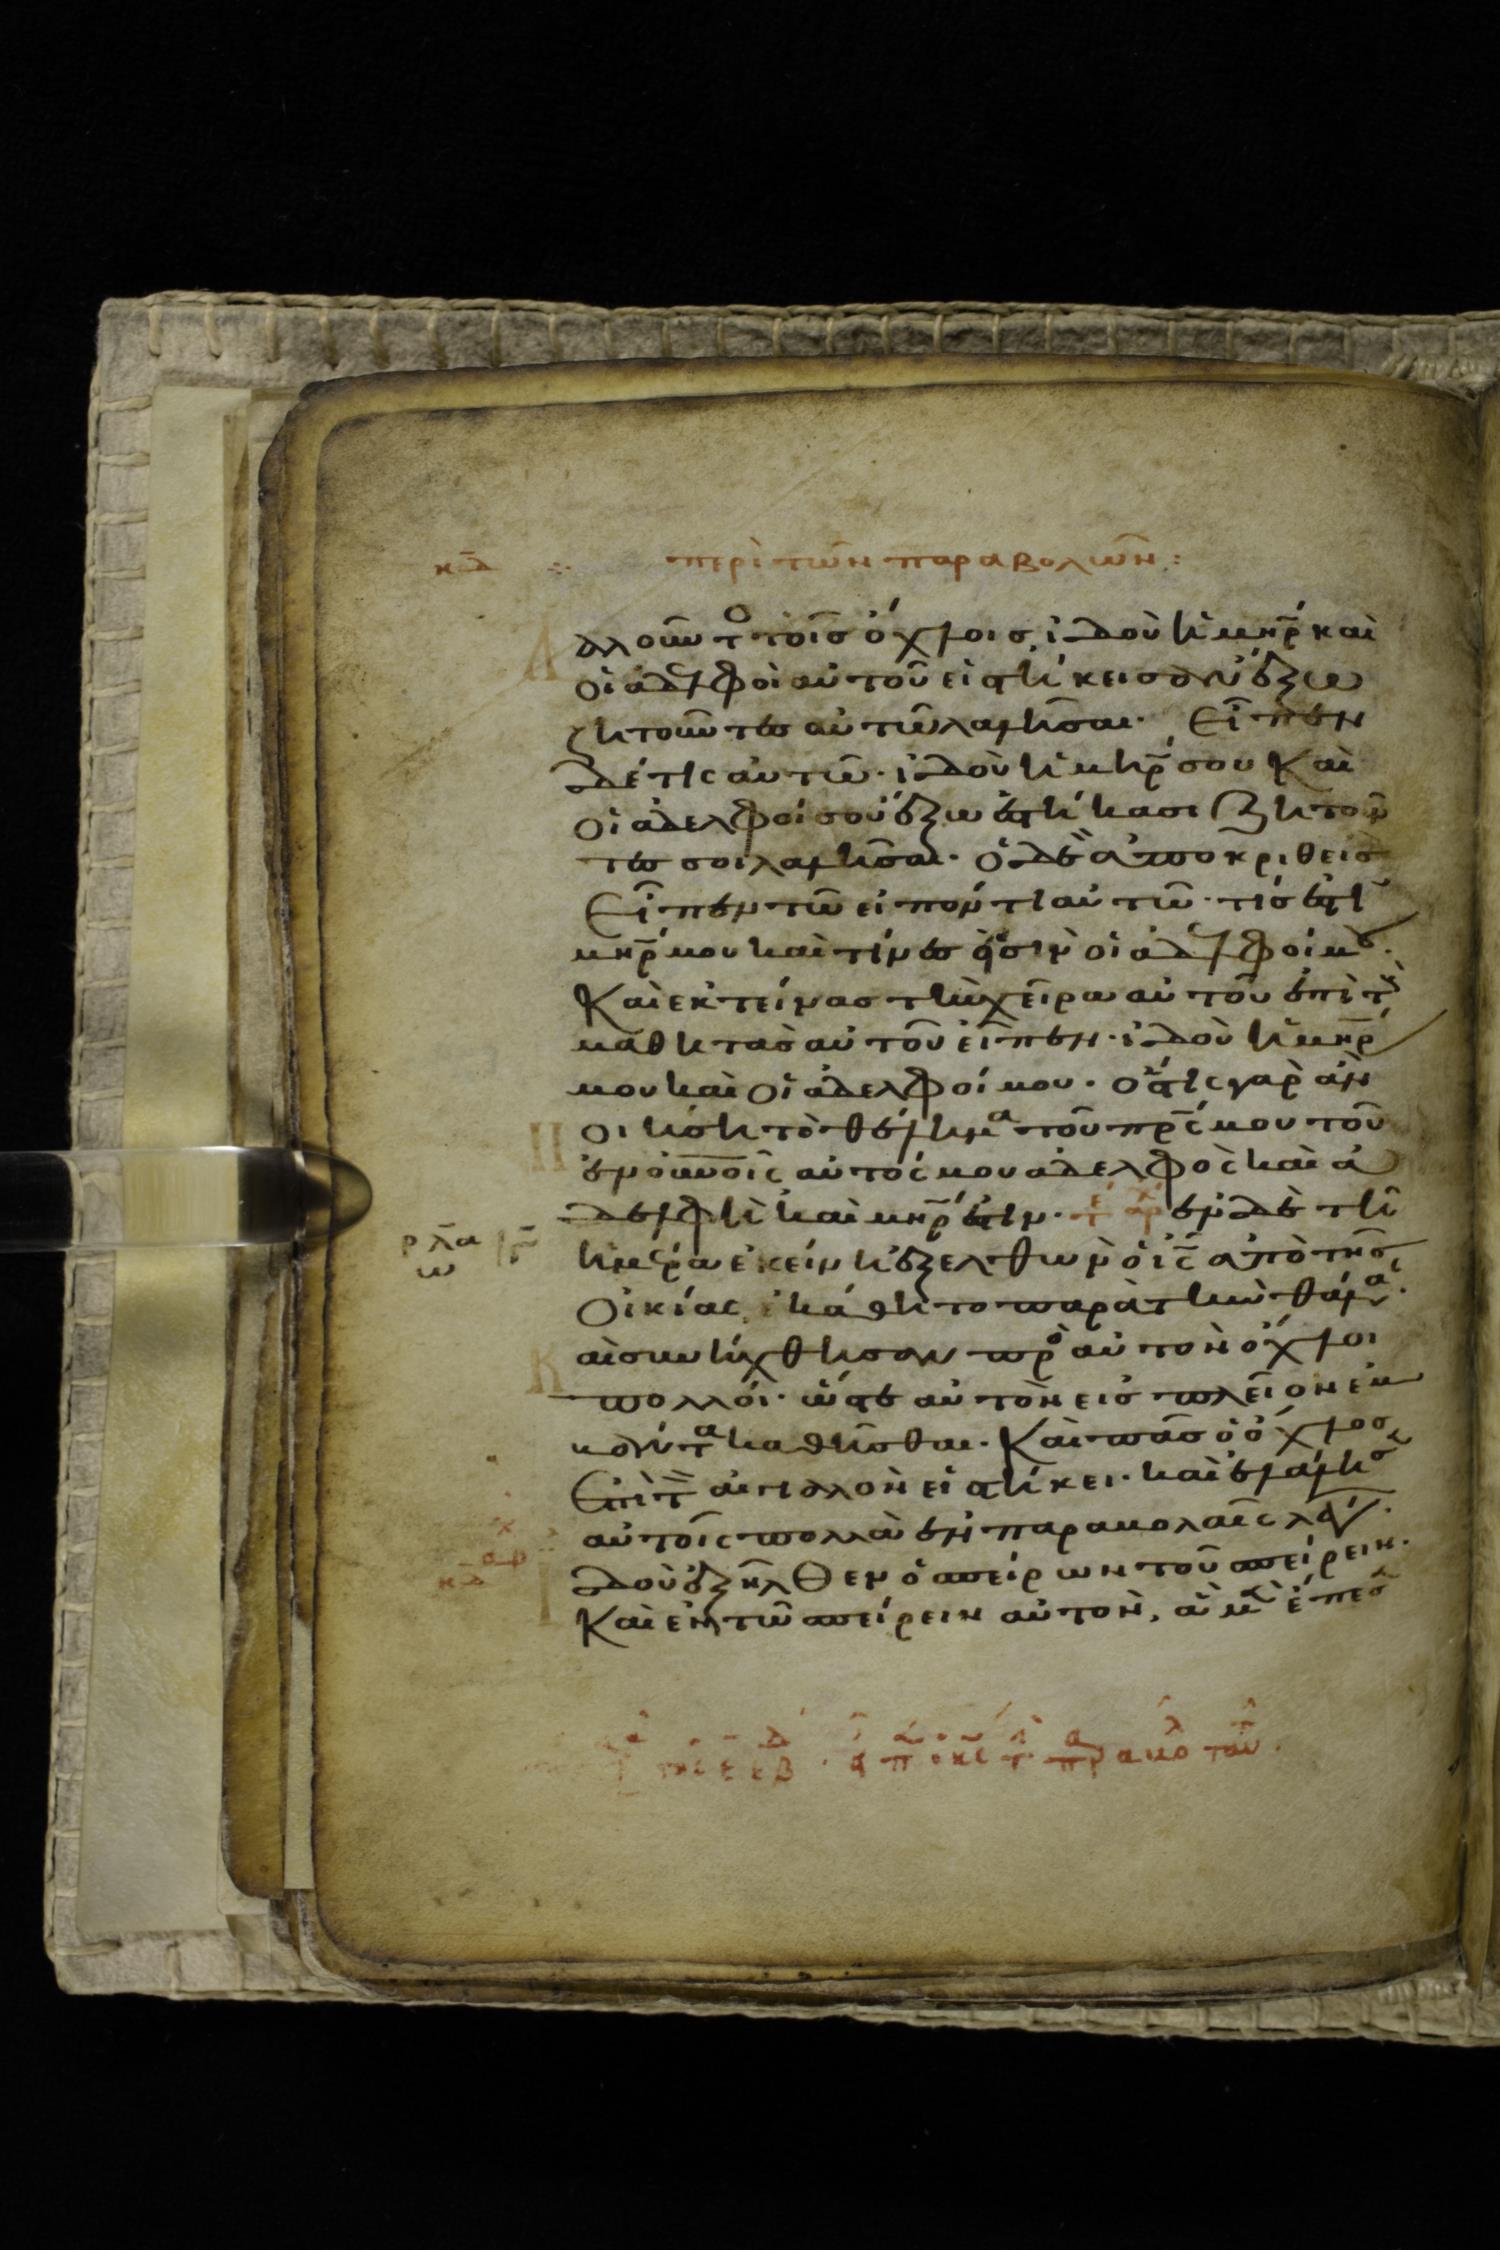 κδ περὶ τῶν παραβολῶν:
λαλοῦντο τοῖς ὄχλοις, ἰδοὺ ἡ μηρ καὶ
οἱ ἀδελφοὶ αὐτοῦ εἰστήκεισαν ἔξω
ζητοῦντες αὐτῶ λαλῆσαι· Εἶπεν
δέ τις αὐτῶ· ἰδοὺ ἡ μηρ σου Καὶ
οἱ ἀδελφοί σου ἔξω ἑστήκασι ζητοῦν
τες σοι λαλῆσαι· ὁ δὲ ἀποκριθεὶς
Εἶπεν τῶ εἰπόντι αὐτῶ· τίς ἐστὶ
μηρ μου καὶ τίνες εἰσὶν οἱ ἀδελφοί μου·
Καὶ ἐκτείνας τὴν χεῖρα αὐτοῦ ἐπὶ τοὺς
μαθητὰς αὐτοῦ εἶπεν· ἰδοὺ ἡ μηρ
μου καὶ οἱ ἀδελφοί μου· ὅστις γὰρ ἂν
ποιήση τὸ θέλημα τοῦ πρς μου τοῦ
ἐν οὐνοῖς αὐτός μου ἀδελφὸς καὶ ἀ
δελφὴ καὶ μηρ ἐστιν· τε αρ ἐν δὲ τῆ
ρλα ἡμέρα ἐκείνη ἐξελθὼν ὁ ις ἀπὸ τῆς
οἰκίας, ἐκάθητο παρὰ τὴν θάλα·
Καὶ συνήχθησαν πρὸ αὐτὸν ὄχλοι
πολλοί· ὥστε αὐτὸν εἰς πλεῖον ἐμ
βάντα καθῆσθαι· Καὶ πᾶς ὁ ὄχλος
Ἐπὶ τὸν αἰγιαλὸν εἰστήκει· καὶ ἐλάλησεν
αὐτοῖς πολλὰ ἐν παραβολαῖς λέγ·
κδ Ἰδοὺ ἐξῆλθεν ὁ σπείρων τοῦ σπείρειν·
Καὶ ἐν τῶ σπείρειν αὐτὸν, ἃ μὲν ἔπεσ